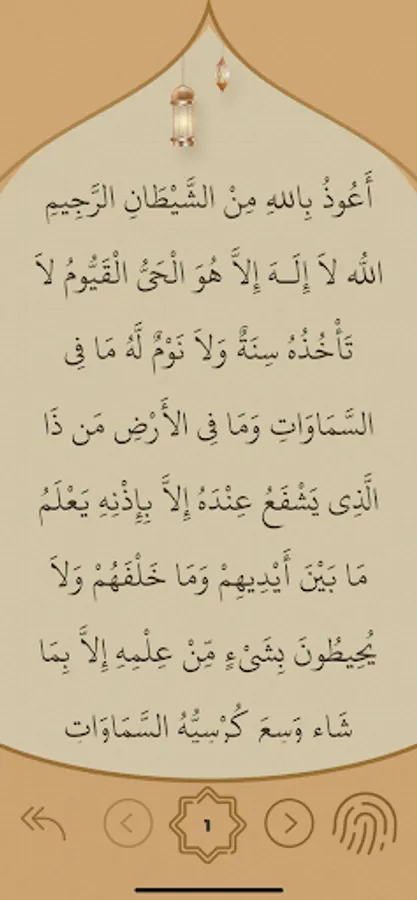 أَعُوذُ بِاللهِ مِنْ الشَّيْطَانِ الرَّجِيمِ
اللهُ لاَ إِلَـهَ إِلاَّ هُوَ الْحَيُّ الْقَيُّومُ لاَ
تَأْخُذُهُ سِنَةٌ وَلاَ نَوْمٌ لَّهُ مَا فِي
السَّمَاوَاتِ وَمَا فِي الأَرْضِ مَن ذَا
الَّذِي يَشْفَعُ عِنْدَهُ إِلاَّ بِإِذْنِهِ يَعْلَمُ
مَا بَيْنَ أَيْدِيهِمْ وَمَا خَلْفَهُمْ وَلاَ
يُحِيطُونَ بِشَيْءٍ مِّنْ عِلْمِهِ إِلاَّ بِمَا
شَاء وَسِعَ كُرْسِيُّهُ السَّمَاوَاتِ
1